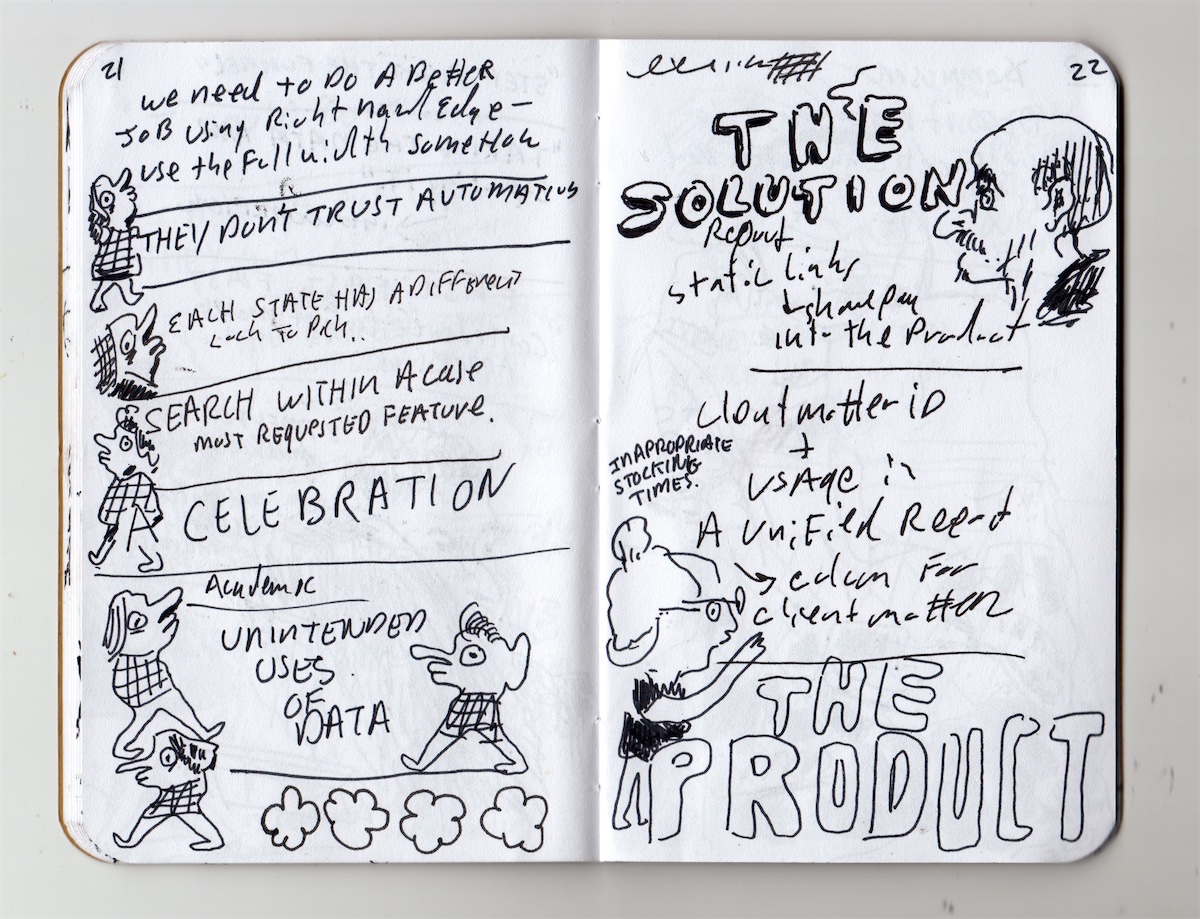 21
we need to Do A Better
JOB using Right hand Edge –
use the Full width somehow
THEY DON'T TRUST AUTOMATION
EACH STATE HAS A DIFFERENT
SEARCH WITHIN A case
MOST REQUESTED FEATURE.
CELEBRATION
Academic
UNINTENDED
USES
OF
DATA
22
THE
SOLUTION
static links
into the Product
matter iD
+
USAge in
A UniFied Report
INAPROPRIATE
STOCKING
TIMES.
For
client matter
THE
PRODUCT